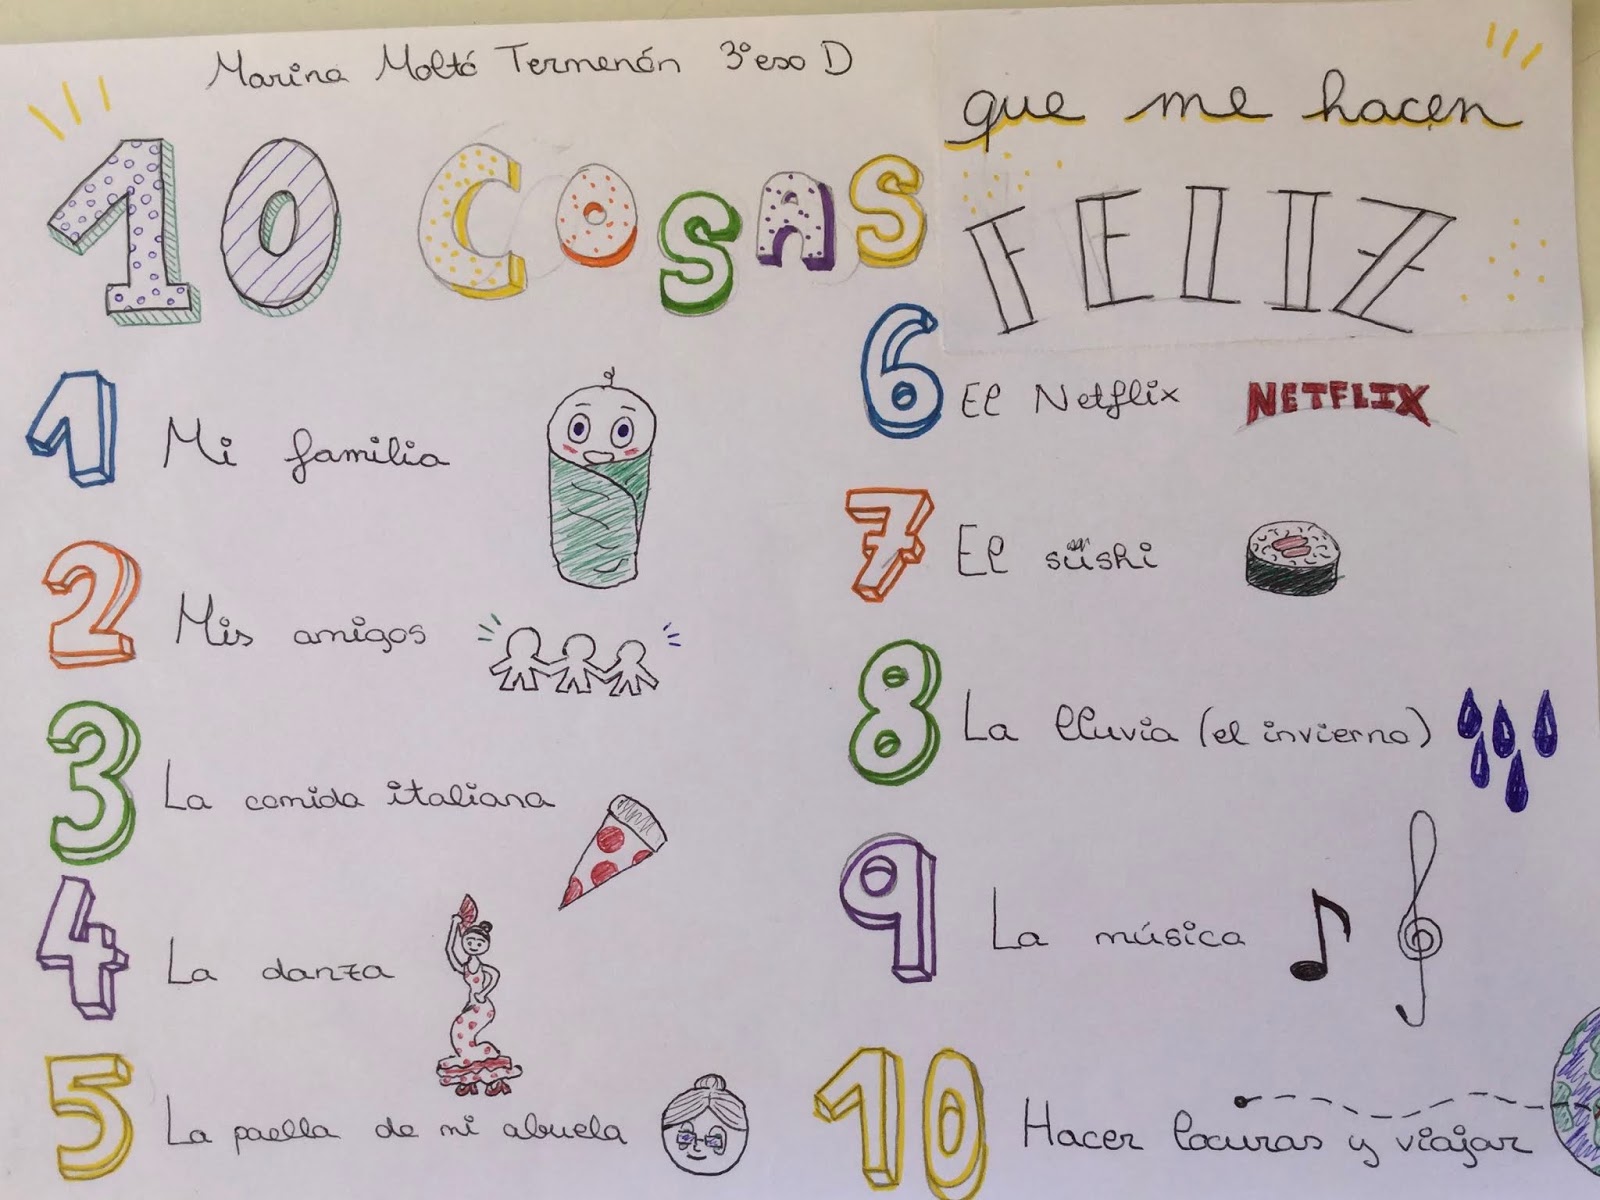 Marina Moltó Termenón 3º eso D
10 COSAS
que me hacen
FELIZ
1 Mi familia
2 Mis amigos
3 La comida italiana
4 La danza
5 La paella de mi abuela
6 El Netflix NETFLIX
7 El süshi
8 La lluvia (el invierno)
9 La música
10 Hacer locuras y viajar